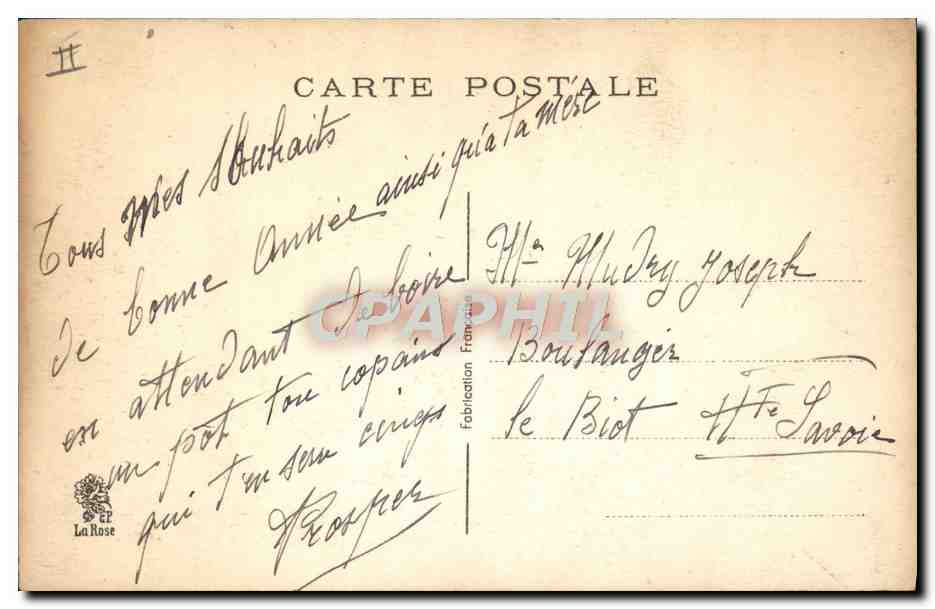 II
CARTE POSTALE
Tous mes souhaits
de bonne Année ainsi qu'a ta mère
en attendant de boire
un pôt ton copains
qui t'en serre cinqs
Prosper
Mr Mudry Joseph
Boulanger
le Biot Hte Savoie
Fabrication Française
CPAPHIL
EP
La Rose